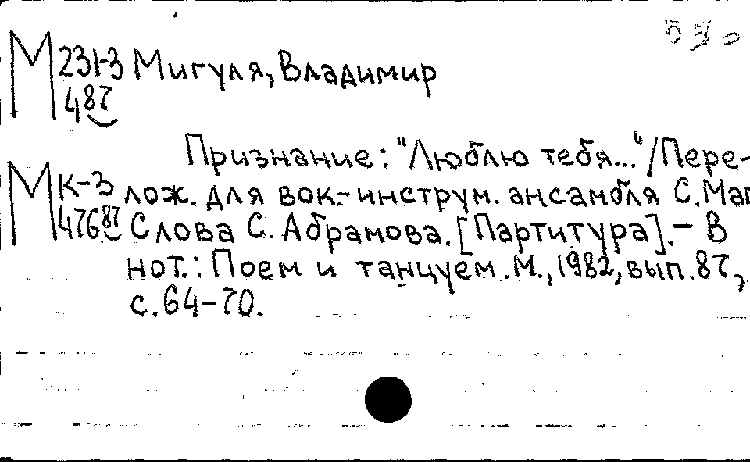 М 231-3 Мигуля, Владимир
487
Признание: "Люблю тебя..." / Пере-
М к-3 лож. для вок.-инструм. ансамбля С. Маг
47687 Слова С. Абрамова. [Партитура]. - В
нот.: Поем и танцуем. М., 1982, вып. 87,
с. 64-70.